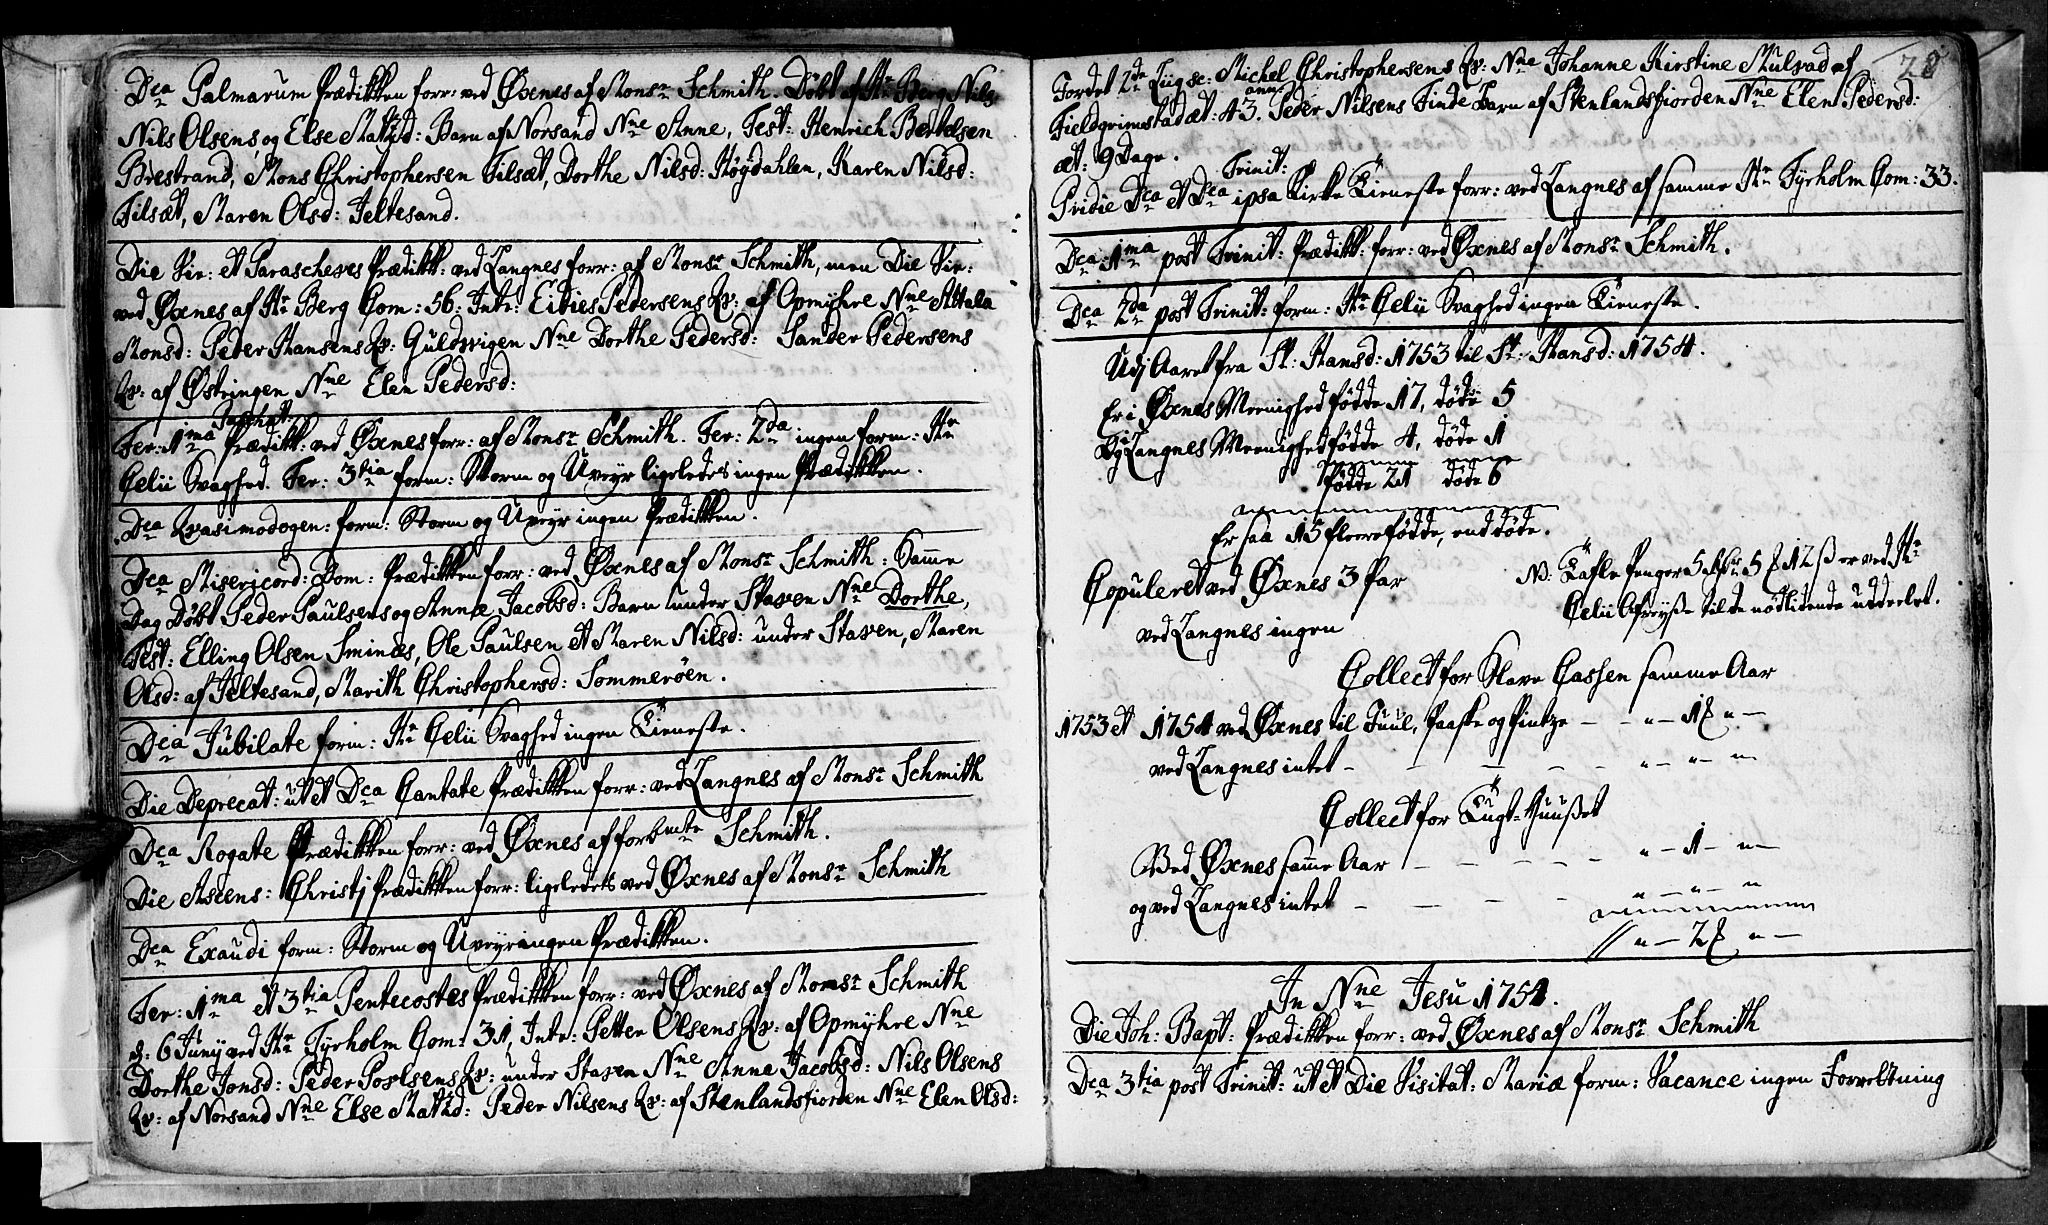 Dca Palmarum Prædikken forr: ved Øxnes af Monsr Schmith. Døbt af Hr Berg Nils
Nils Olsens og Else Matzd: Barn af Norsand Nne Anne, Test: Henrich Bertelsen
Brestrand, Mons Christophersen Tilsæt, Dorthe Nilsd: Høydahlen, Karen Nilsd:
Tilsæt, Maren Olsd: Jeltesand.
Die Vir: et Parascheves Prædikk: ved Langnes forr: af Monsr Schmith, men Die Vir:
ved Øxnes af Hr Berg Com: 56. Intr: Eities Pedersens Qv: af Opmyhre Nne Attala
Monsd: Peder Hansens Qv: Guldvigen Nne Dorthe Pedersd: Sander Pedersens
Qv: af Østringen Nne Elen Pedersd:
Fer: 1ma Paschat: Prædikk: ved Øxnes forr: af Monsr Schmith. Fer: 2da ingen form: Hr
Celii Svaghed. Fer: 3tia form: Storm og Uveyr ligeledes ingen Prædikken.
Dca Qvasimodogen: form: Storm og Uveyr ingen Prædikken.
Dca Misericord: Dom: Prædikken forr: ved Øxnes af Monsr Schmith: Samme
Dag Døbt Peder Paulsens og Anne Jacobsd: Barn under Staven Nne Dorthe,
Test: Elling Olsen Sminæs, Ole Paulsen et Maren Nilsd: under Staven, Maren
Olsd: af Jeltesand, Marith Christophersd: Sommerøen.
Dca Jubilate form: Hr Celii Svaghed ingen Tieneste.
Die Deprecat: ut et Dca Cantate Prædikken forr: ved Langnes af Monsr Schmith
Dca Rogate Prædikken forr: ved Øxnes af forbmte Schmith.
Die Ascens: Christj Prædikken forr: ligeledes ved Øxnes af Monsr Schmith
Dca Exaudi form: Storm og Uveyr ingen Prædikken.
Fer: 1ma et 3tia Pentecostes Prædikken forr: ved Øxnes af Monsr Schmith
d: 6 Juny ved Hr Tyrholm Com: 31, Intr: Petter Olsens Qv: af Opmyhre Nne
Dorthe Jonsd: Peder Povlsens Qv: under Staven Nne Anne Jacobsd: Nils Olsens
Qv: af Norsand Nne Else Matzd: Peder Nilsens Qv: af Stenlandsfiorden Nne Elen Olsd:
28
Jordet 2de Liig sc: Michel Christophersens Qv: Nne Johanne Kirstine Mulvad af
Fieldgrimstad æt: 43. ann: Peder Nilsens Finde Barn af Stenlandsfiorden Nne Elen Pedersd:
æt: 9 Dage.
Pridie Dca et Dca Trinit: ipsa Kirke Tieneste forr: ved Langnes af samme Hr Tyrholm Com: 33.
Dca 1ma post Trinit: Prædikk: forr: ved Øxnes af Monsr Schmith.
Dca 2da post Trinit: form: Hr Celii Svaghed ingen Tieneste.
Udj Aaret fra St: Hansd: 1753 til St: Hansd: 1754.
Er i Øxnes Meenighed fødde 17, døde 5
Og i Langnes Meenighed fødde 4, døde 1
Fødde 21 døde 6
Er saa 15 fleere fødde, end døde.
Copuleret ved Øxnes 3 Par
ved Langnes ingen
NB: Tafle Penger 5 5 12 ß er ved Hr
Celii Afreyße til de nødlidende uddeelet.
Collect for Slave Cassen samme Aar
1753 et 1754 ved Øxnes til Juul, Paaske og Pintze - - " - 1 " -
ved Langnes intet - - - - - " - " - "
Collect for Tugt-Huuset
Ved Øxnes samme Aar - - - - - " - 1 - " -
og ved Langnes intet - - - - " - " - "
" - 2 " -
In Nne Jesu 1754.
Die Joh: Bapt: Prædikken forr: ved Øxnes af Monsr Schmith
Dca 3tia post Trinit: ut et Die Visitat: Mariæ form: Vacance ingen Forretning